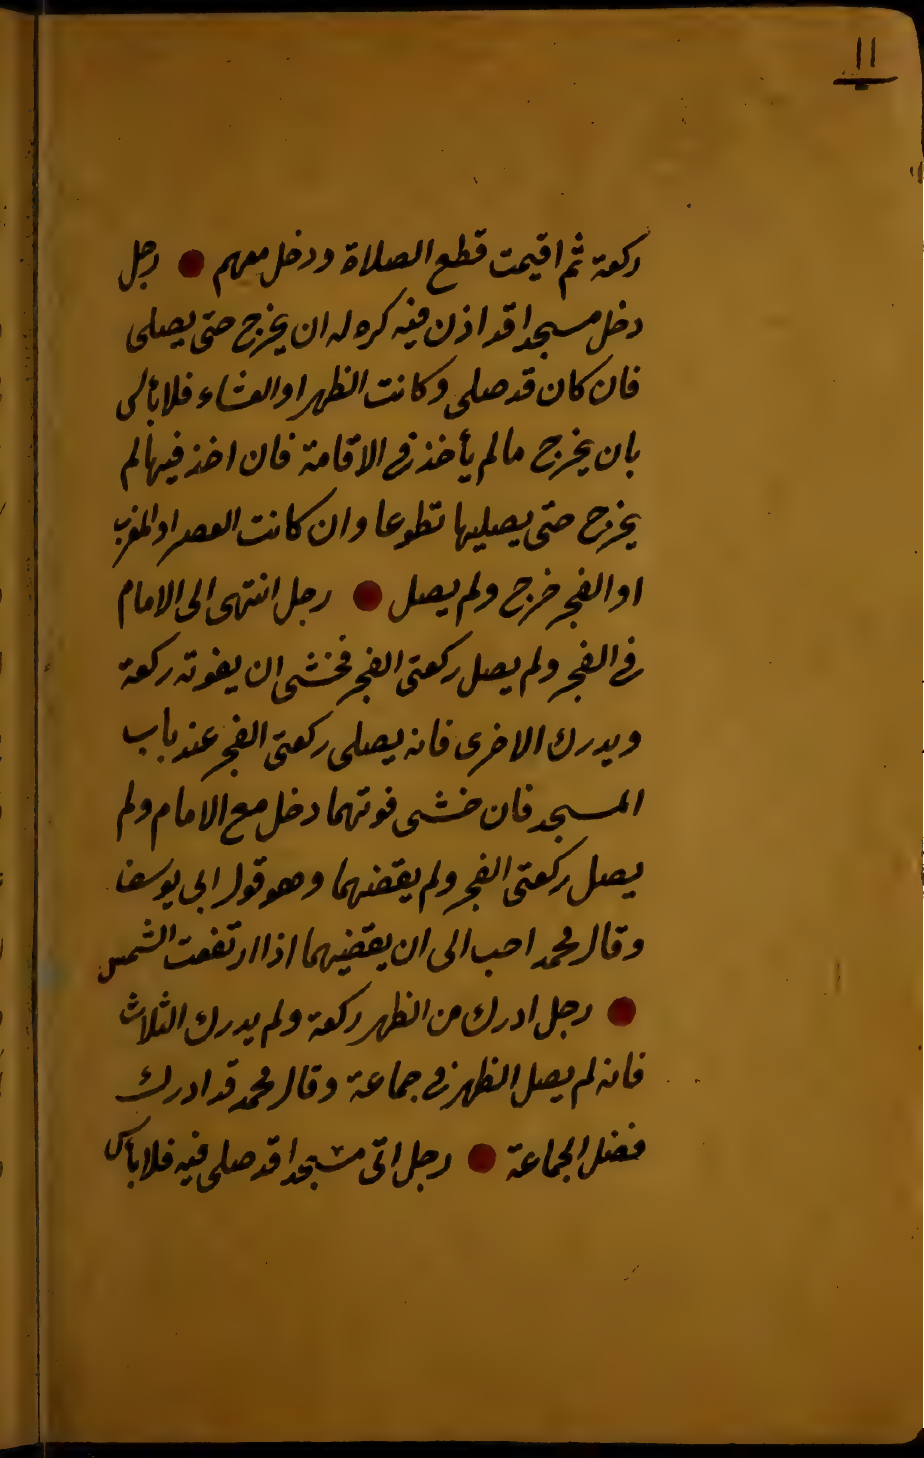 ١١
ركعة ثم اقيمت قطع الصلاة ودخل معهم ● رجل
دخل مسجدا قد اذن فيه كره له ان يخرج حتى يصلى
فان كان قد صلى وكانت الظهر او العشاء فلا بأس
بان يخرج ما لم يأخذ فى الاقامة فان اخذ فيها لم
يخرج حتى يصليها تطوعا وان كانت العصر او المغرب
او الفجر خرج ولم يصل ● رجل انتهى الى الامام
فى الفجر ولم يصل ركعتى الفجر فخشى ان يفوته ركعة
ويدرك الاخرى فانه يصلى ركعتى الفجر عند باب
المسجد فان خشى فوتهما دخل مع الامام ولم
يصل ركعتى الفجر ولم يقضهما وهو قول ابى يوسف
وقال محمد احب الى ان يقضيهما اذا ارتفعت الشمس
● رجل ادرك من الظهر ركعة ولم يدرك الثلاث
فانه لم يصل الظهر فى جماعة وقال محمد قد ادرك
فضل الجماعة ● رجل اتى مسجدا قد صلى فيه فلا بأس